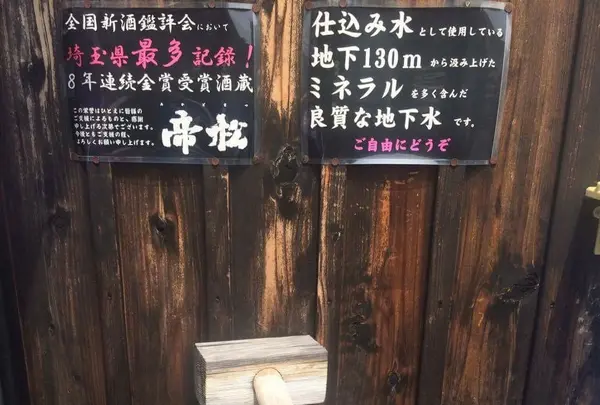 全国新酒鑑評会において
埼玉県最多記録!
8年連続金賞受賞酒蔵
この栄誉はひとえに皆様の
ご支援によるものと、感謝
申し上げる次第でございます。
今後ともご支援の程、
よろしくお願い申し上げます。
みかどまつ
帝松
仕込み水として使用している
地下130mから汲み上げた
ミネラルを多く含んだ
良質な地下水です。
ご自由にどうぞ